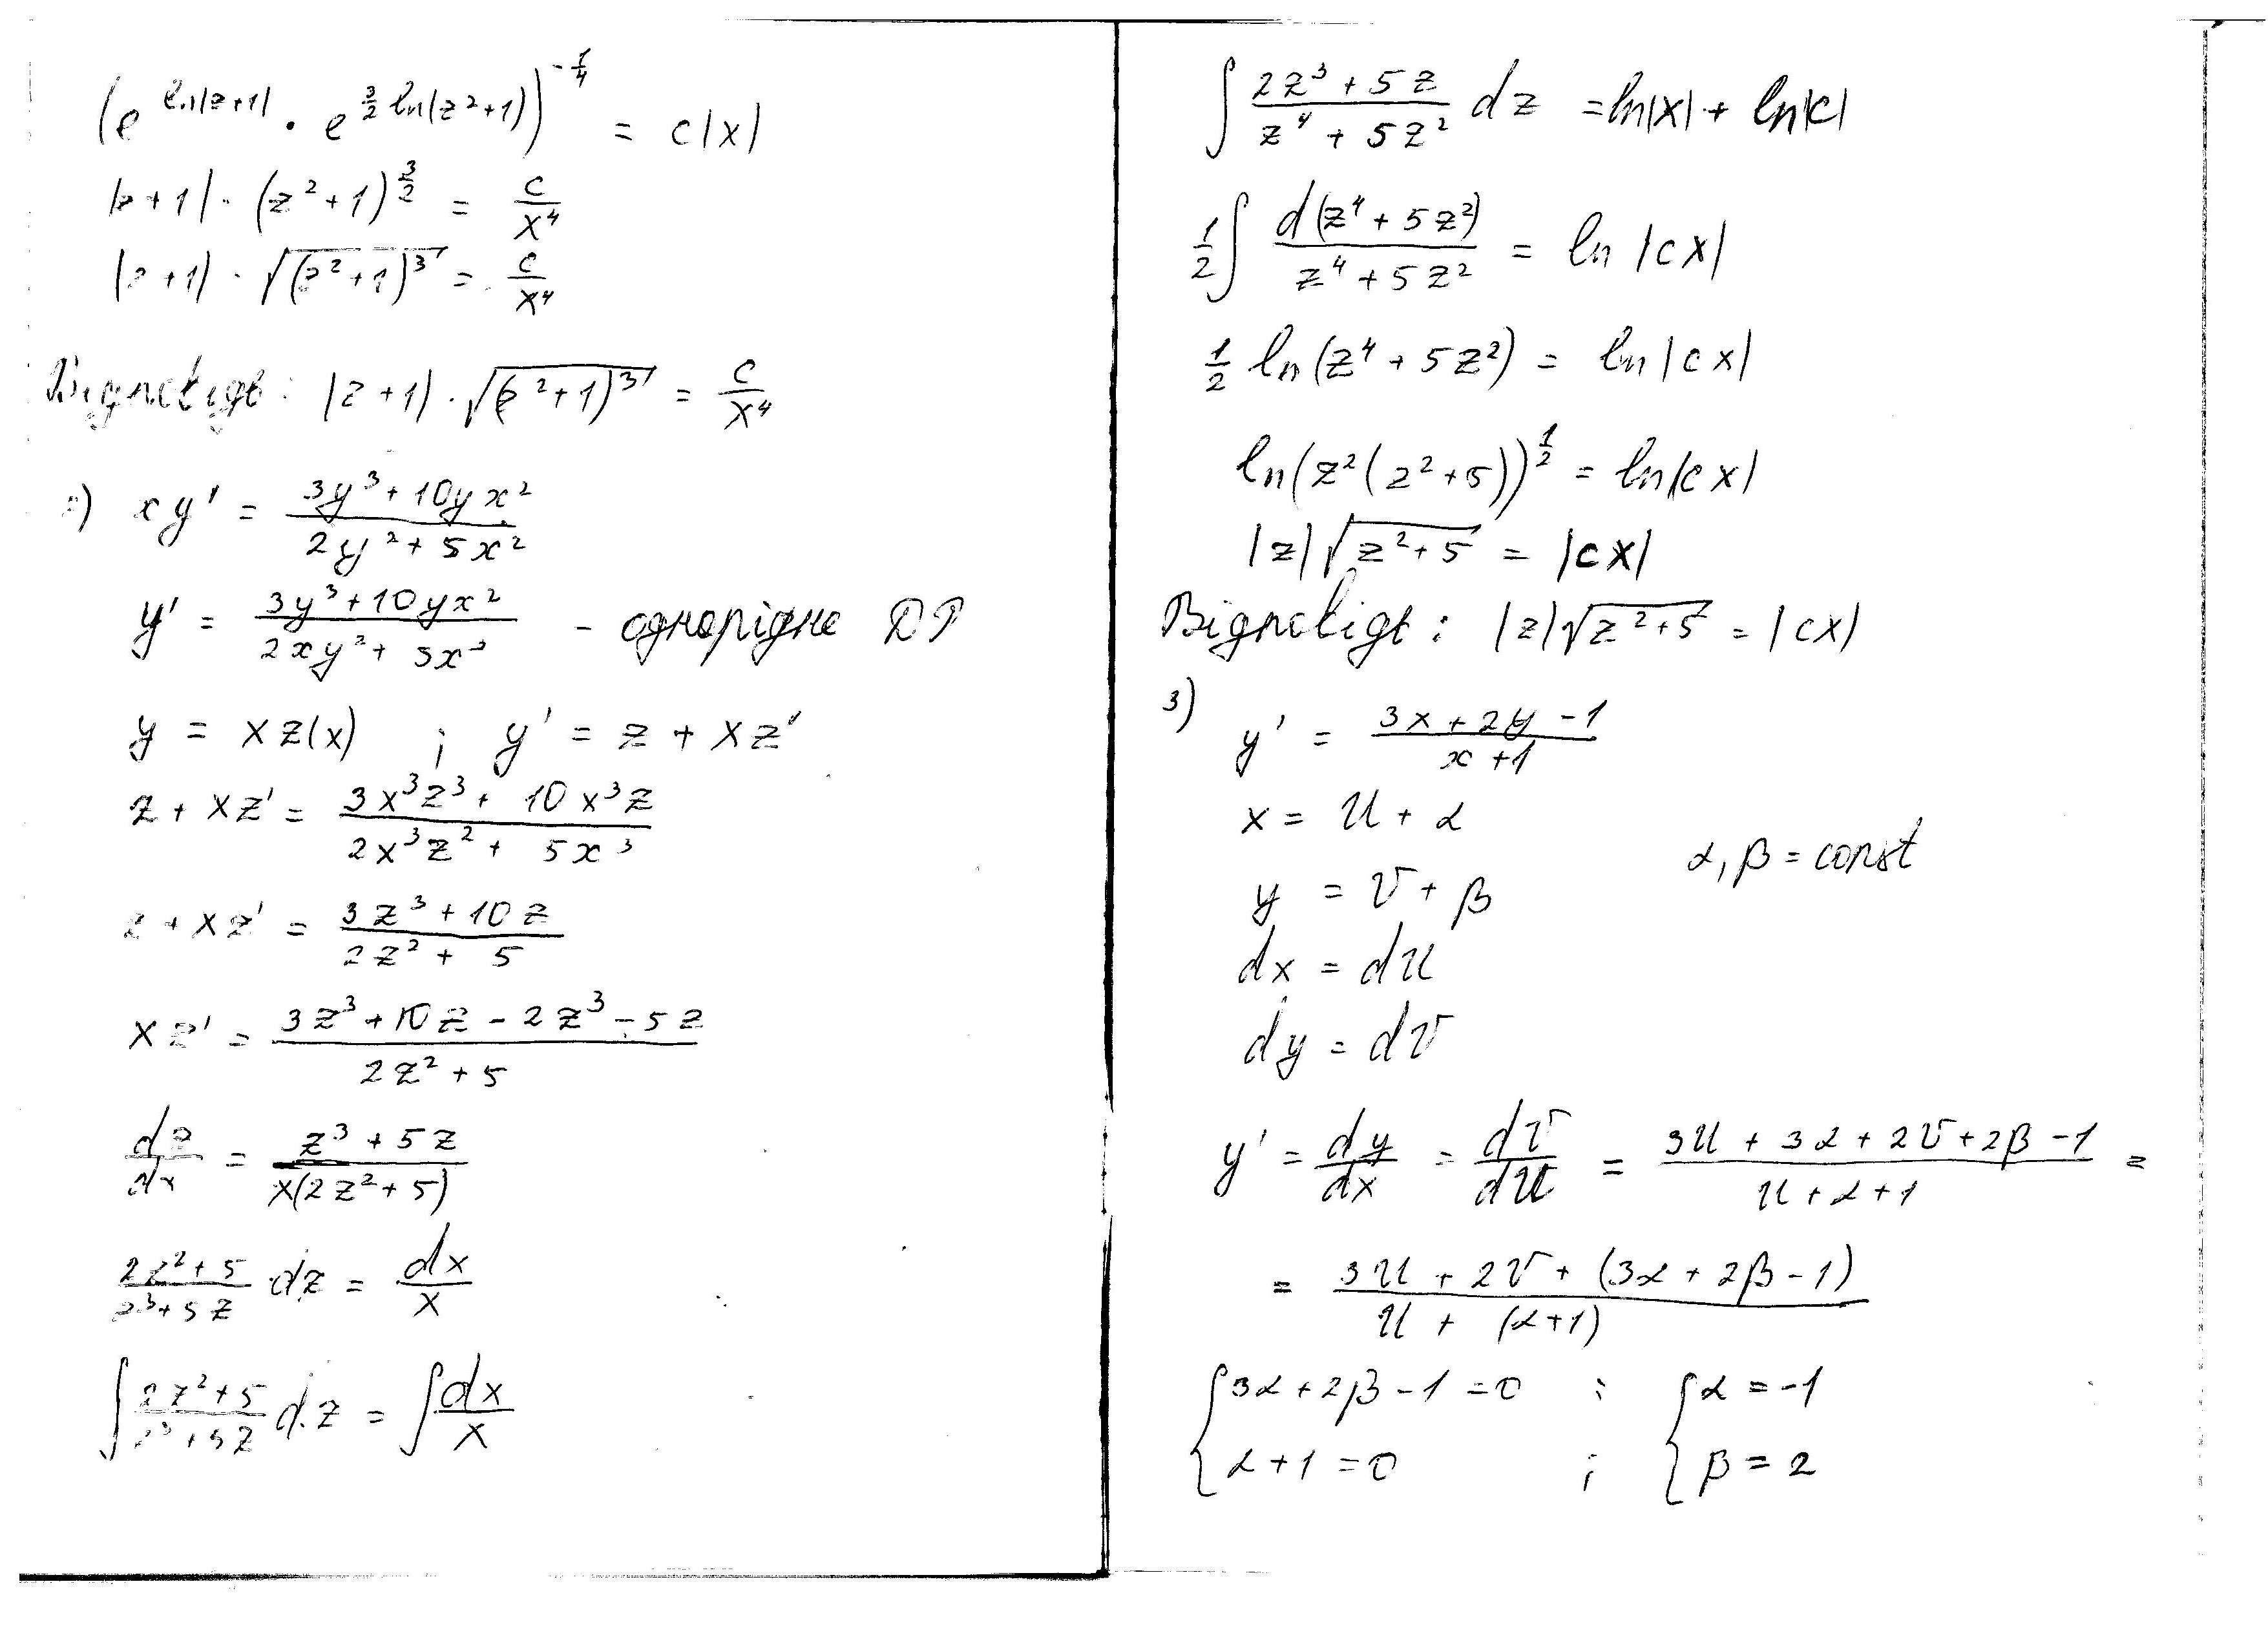 (e^{ln|z+1|} · e^{\frac{3}{2} ln(z²+1)})^{-\frac{1}{4}} = c|x|
|z+1| · (z²+1)^{\frac{3}{2}} = \frac{c}{x⁴}
|z+1| · √((z²+1)³) = \frac{c}{x⁴}
Відповідь: |z+1| · √((z²+1)³) = \frac{c}{x⁴}
2) xy' = \frac{3y³+10yx²}{2y²+5x²}
y' = \frac{3y³+10yx²}{2xy²+5x³} - однорідне ДР
y = xz(x) ; y' = z + xz'
z + xz' = \frac{3x³z³ + 10x³z}{2x³z² + 5x³}
z + xz' = \frac{3z³+10z}{2z² + 5}
xz' = \frac{3z³+10z-2z³-5z}{2z²+5}
\frac{dz}{dx} = \frac{z³+5z}{x(2z²+5)}
\frac{2z²+5}{z³+5z} dz = \frac{dx}{x}
∫ \frac{2z²+5}{z³+5z} dz = ∫ \frac{dx}{x}
∫ \frac{2z³+5z}{z⁴+5z²} dz = ln|x| + ln|c|
\frac{1}{2} ∫ \frac{d(z⁴+5z²)}{z⁴+5z²} = ln|cx|
\frac{1}{2} ln(z⁴+5z²) = ln|cx|
ln(z²(z²+5))^{\frac{1}{2}} = ln|cx|
|z|√(z²+5) = |cx|
Відповідь: |z|√(z²+5) = |cx|
3) y' = \frac{3x+2y-1}{x+1}
x = u + α
α, β = const
y = v + β
dx = du
dy = dv
y' = \frac{dy}{dx} = \frac{dv}{du} = \frac{3u+3α+2v+2β-1}{u+α+1} =
= \frac{3u+2v+(3α+2β-1)}{u+(α+1)}
{ 3α+2β-1=0 ; { α = -1
α+1=0 ; β = 2